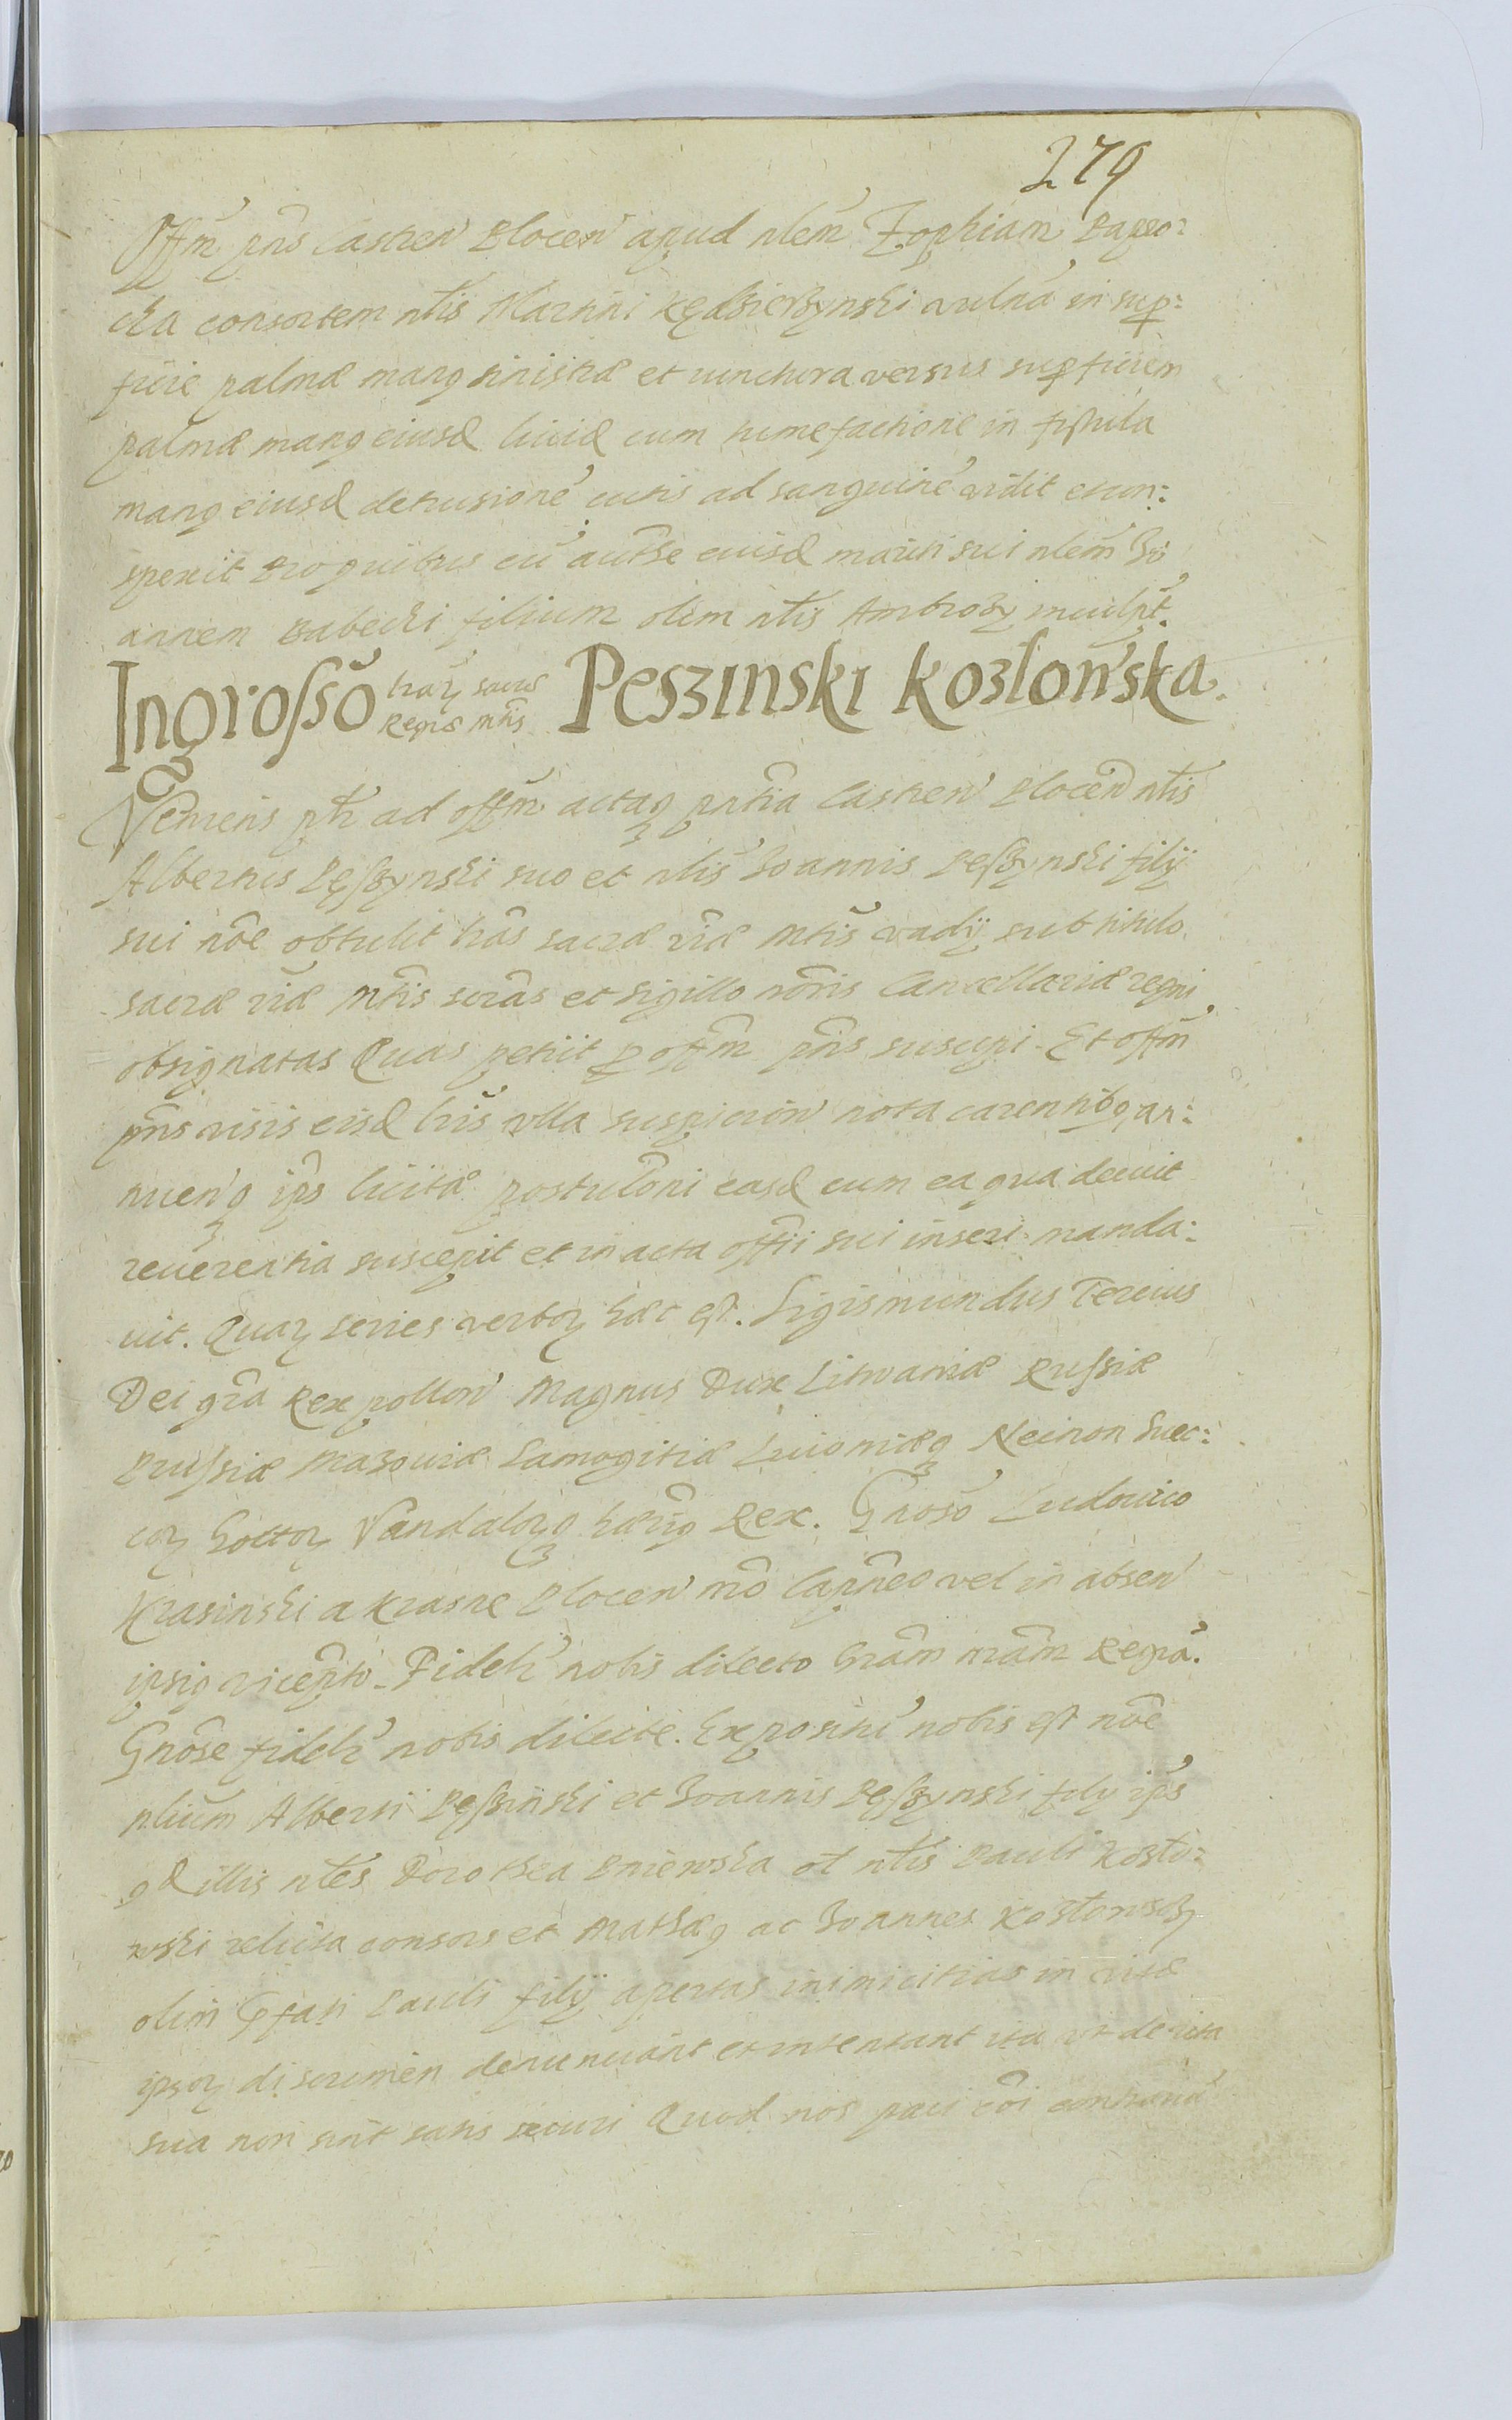 279
Offm pns Castren Plocen apud nlem Zophiam Papro:
cka consortem nlis Martini Kędzierzynski vulna in sup:
ficie palmæ manq sinistræ et punctura versus supficiem
palmæ manq eiusd livid cum tumefactione in fistula
manq eiusd detrusione cutis ad sanguine vidit et con:
spexit Pro quibus cu authe euisd mariti sui nlem Jo
annem Babecki filium olim nlis Ambrozy inculpt.
Ingrosso lrarz sacræ Regiæ Mtis Peszinski Kozlowska.
Veniens pr ad offm actaq pntia Castren Plocen nlis
Albertus Pęsszynski suo et nlis Joannis Pesszynski filij
sui noe obtulit lras sacræ riæ Mtis vadij sub titulo
sacræ riæ Mtis scras et sigillo moris Cancellariæ regni
obsignatas Quas petiit p offm pns suscipi. Et offm
pns visis eisd lris vlla suspicion nota carentibq, an:
nuenq ips licitæ postuloni easd cum ea qua decuit
reuerentia suscepit et in acta offii sui inseri manda:
uit. Quarz series verborz hæc est. Sigismundus Tercius
Dei gra Rex pollon Magnus Dux Litwaniæ Russiæ
Prussiæ Mazouiæ Samogitiæ Liuoniæq Necnon Suec:
corz Gottorz Vandalorzq hæriq Rex. Gnoso Ludouico
Krasinski a Krasne Plocen nro Capneo vel in absen
ipsiq vicepnto. Fideli nobis dilecto Gram nram Regia.
Gnose fidelr nobis dilecte. Expositu nobis est noe
nlium Alberti Pęsszinski et Joannis Pęsszynski filij ips
qd illis nles Dorothea Pniewska ol nlis Pauli Kozlo:
wski relicta consors et Mathæq ac Joannes Kozlowscy
olim pfati Pauli filij apertas inimicitias in vitæ
ipsorz discrimen denunciant et intentant ita vt de vita
sua non sint satis securi Quod nos paci coi contrariu